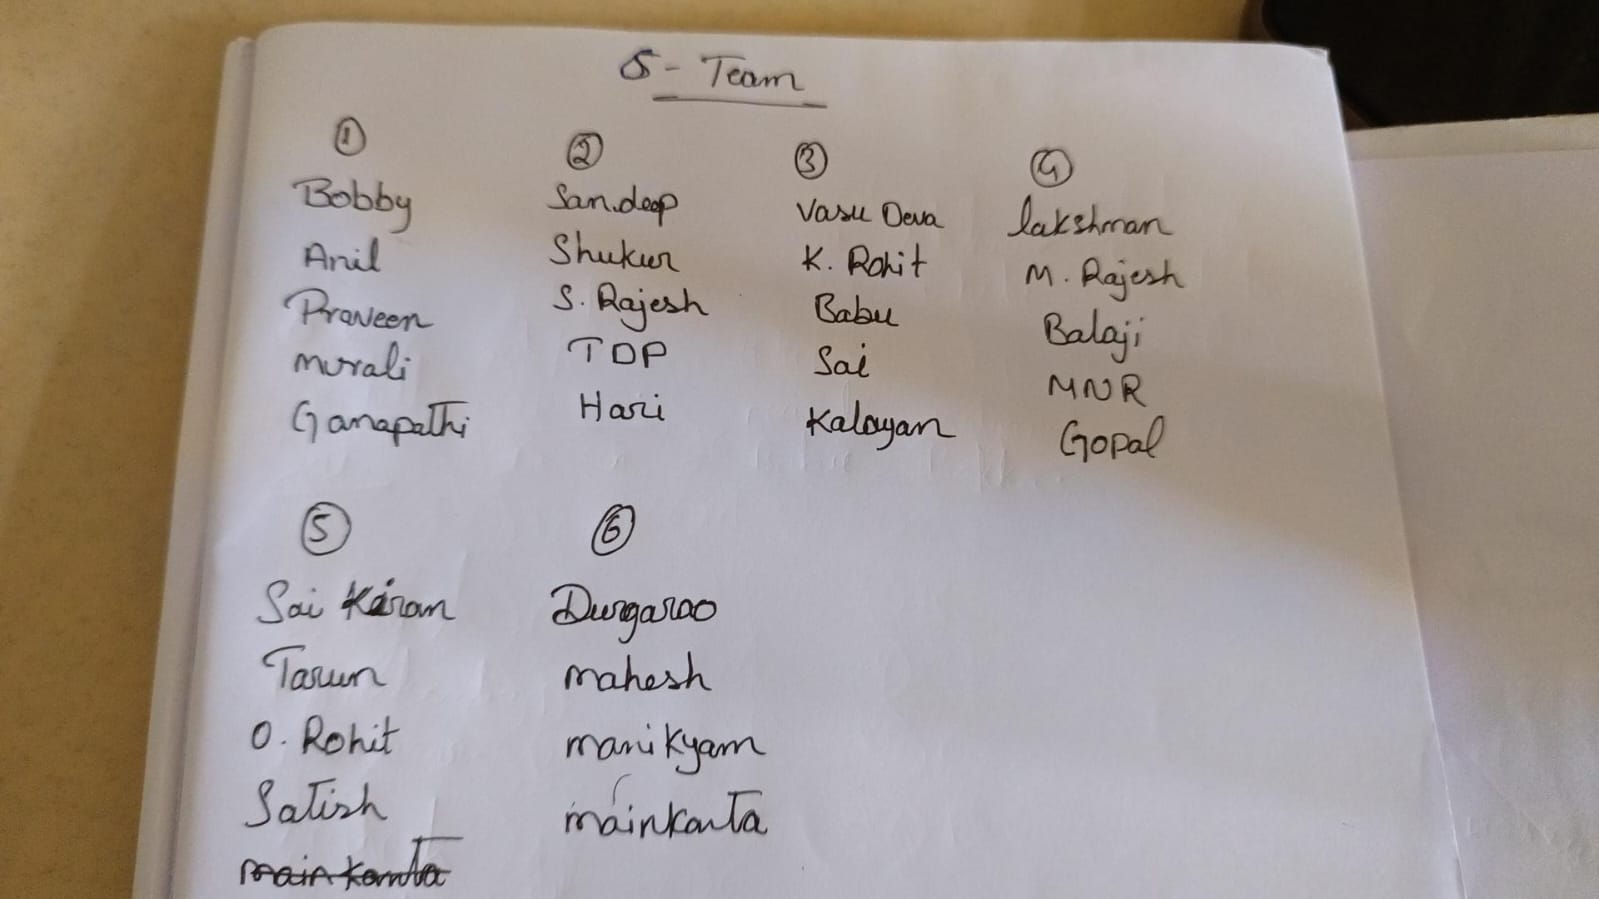 5 - Team
1
Bobby
Anil
Praveen
Murali
Ganapathi
2
Sandeep
Shukur
S. Rajesh
TDP
Hari
3
Vasu Deva
K. Rohit
Babu
Sai
Kalayan
4
lakshman
M. Rajesh
Balaji
MNR
Gopal
5
Sai Kiran
Tarun
O. Rohit
Satish
mainkanta
6
Durgarao
mahesh
manikyam
mainkanta